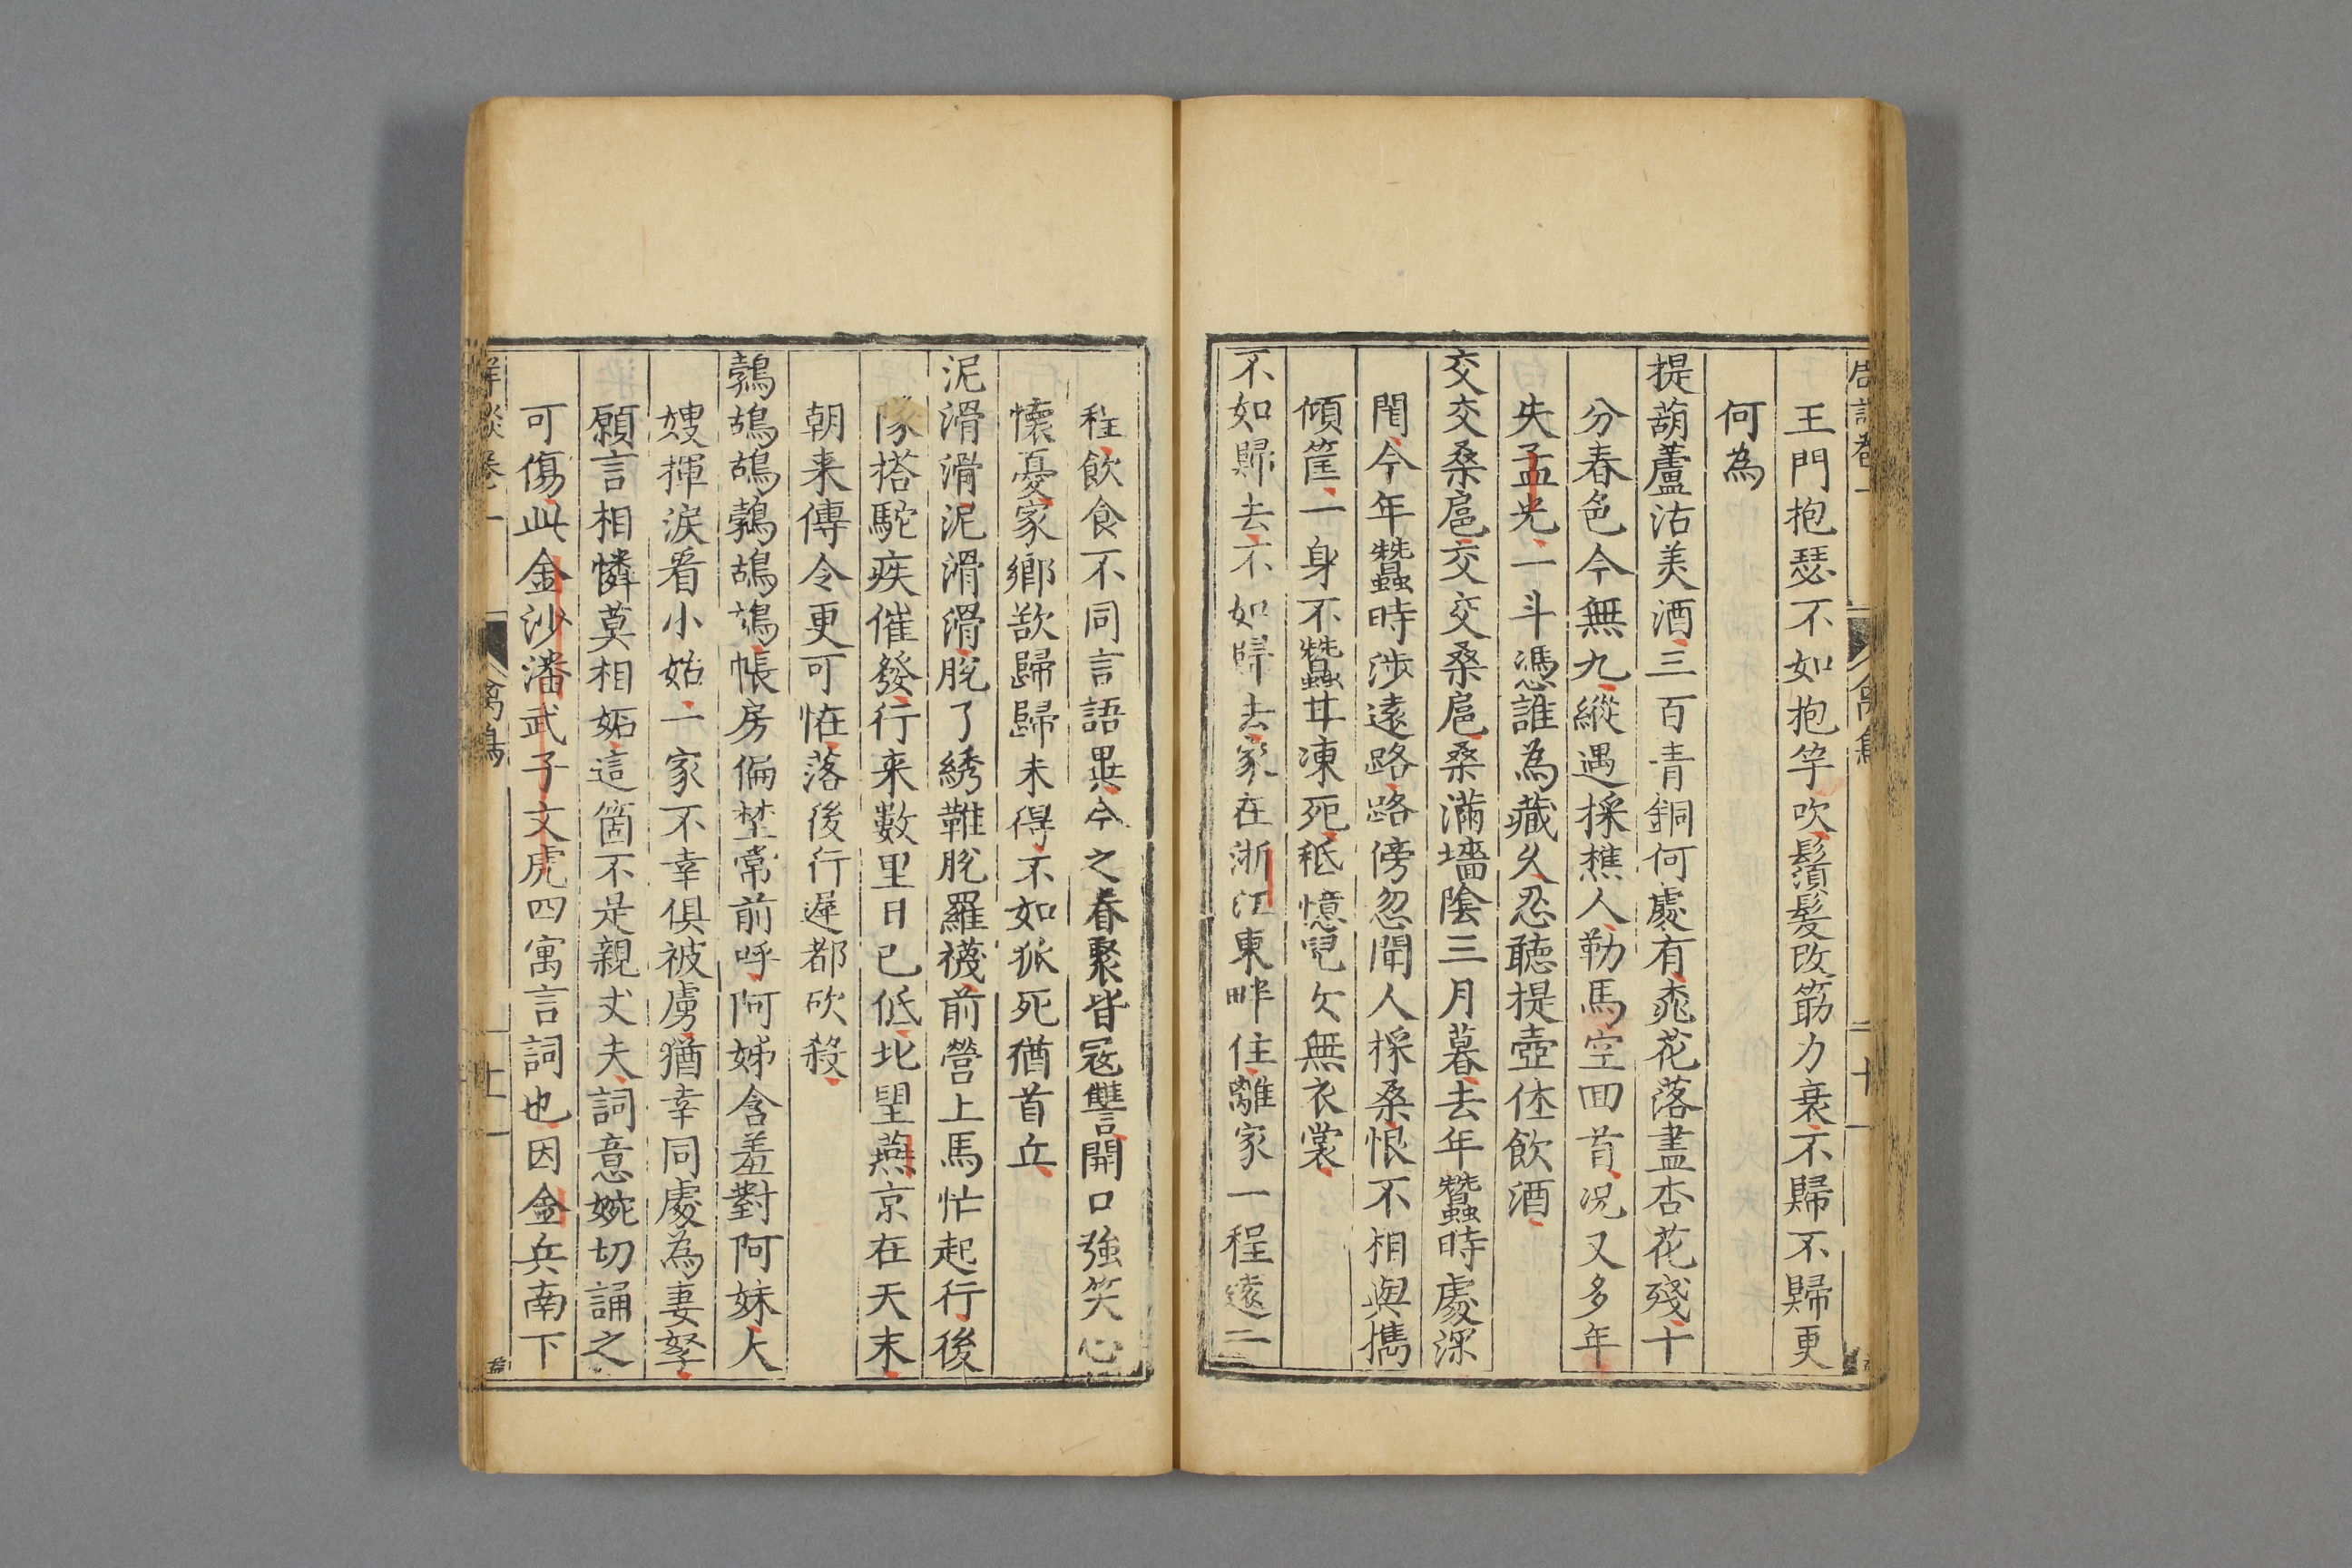 王門抱瑟不如抱竽吹鬚髮改筋力衰不歸不歸更
何為
提葫蘆沽美酒三百青銅何處有桃花落盡杏花殘十
分春色今無九縱遇採樵人勒馬空回首况又多年
失孟光一斗憑誰為藏久忍聽提壺体飲酒
交交桑扈交交桑扈桑滿墻陰三月暮去年蠶時處深
閨今年蠶時涉遠路路傍忽聞人採桑恨不相與擕
傾筐一身不蠶甘凍死秪憶兒欠無衣裳
不如歸去不如歸去家在浙江東畔住離家一程遠一
程飲食不同言語異今之眷聚皆寇讐開口強笑心
懷憂家鄉欲歸歸未得不如狐死猶首丘
泥滑滑泥滑滑脫了綉鞋脫羅襪前營上馬忙起行後
隊搭駝疾催發行来數里日已低北望燕京在天末
朝来傳令更可怪落後行遲都砍殺
鵓鴣鴣鵓鴣鴣帳房偏埜常前呼阿姊含羞對阿妹大
嫂揮淚看小姑一家不幸俱被虜猶幸同處為妻孥
願言相憐莫相妬這箇不是親丈夫詞意婉切誦之
可傷此金沙潘武子文虎四寓言詞也因金兵南下
禽鳥